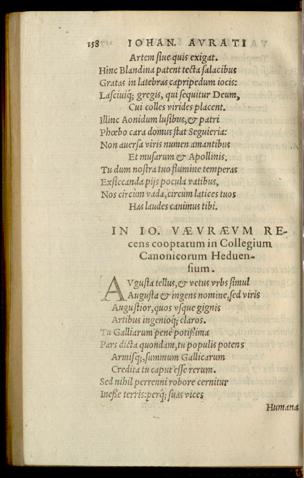 158 IOHAN. AVRATI
Artem siue quis exigat.
Hinc Blandina patent tecta salacibus
Gratas in latebras capripedum iocis:
Lasciuiq; gregis, qui sequitur Deum,
Cui colles virides placent.
Illinc Aonidum lusibus, & patri
Phœbo cara domus stat Seguieria:
Non auersa viris numen amantibus
Et musarum & Apollinis.
Tu dum nostra tuo flumine temperas
Exsiccanda pijs pocula vatibus,
Nos circùm vada, circùm latices tuos
Has laudes canimus tibi.
IN IO. VÆVRÆVM RE
cens cooptatum in Collegium
Canonicorum Heduen-
sium.
AVgusta tellus, & vetus vrbs simul
Augusta & ingens nomine, sed viris
Augustior, quos vsque gignis
Artibus ingenioq; claros.
Tu Galliarum penè potissima
Pars dicta quondam, tu populis potens
Armisq;, summum Gallicarum
Credita tu caput esse rerum.
Sed nihil perenni robore cernitur
Inesse terris: perq; suas vices
Humana